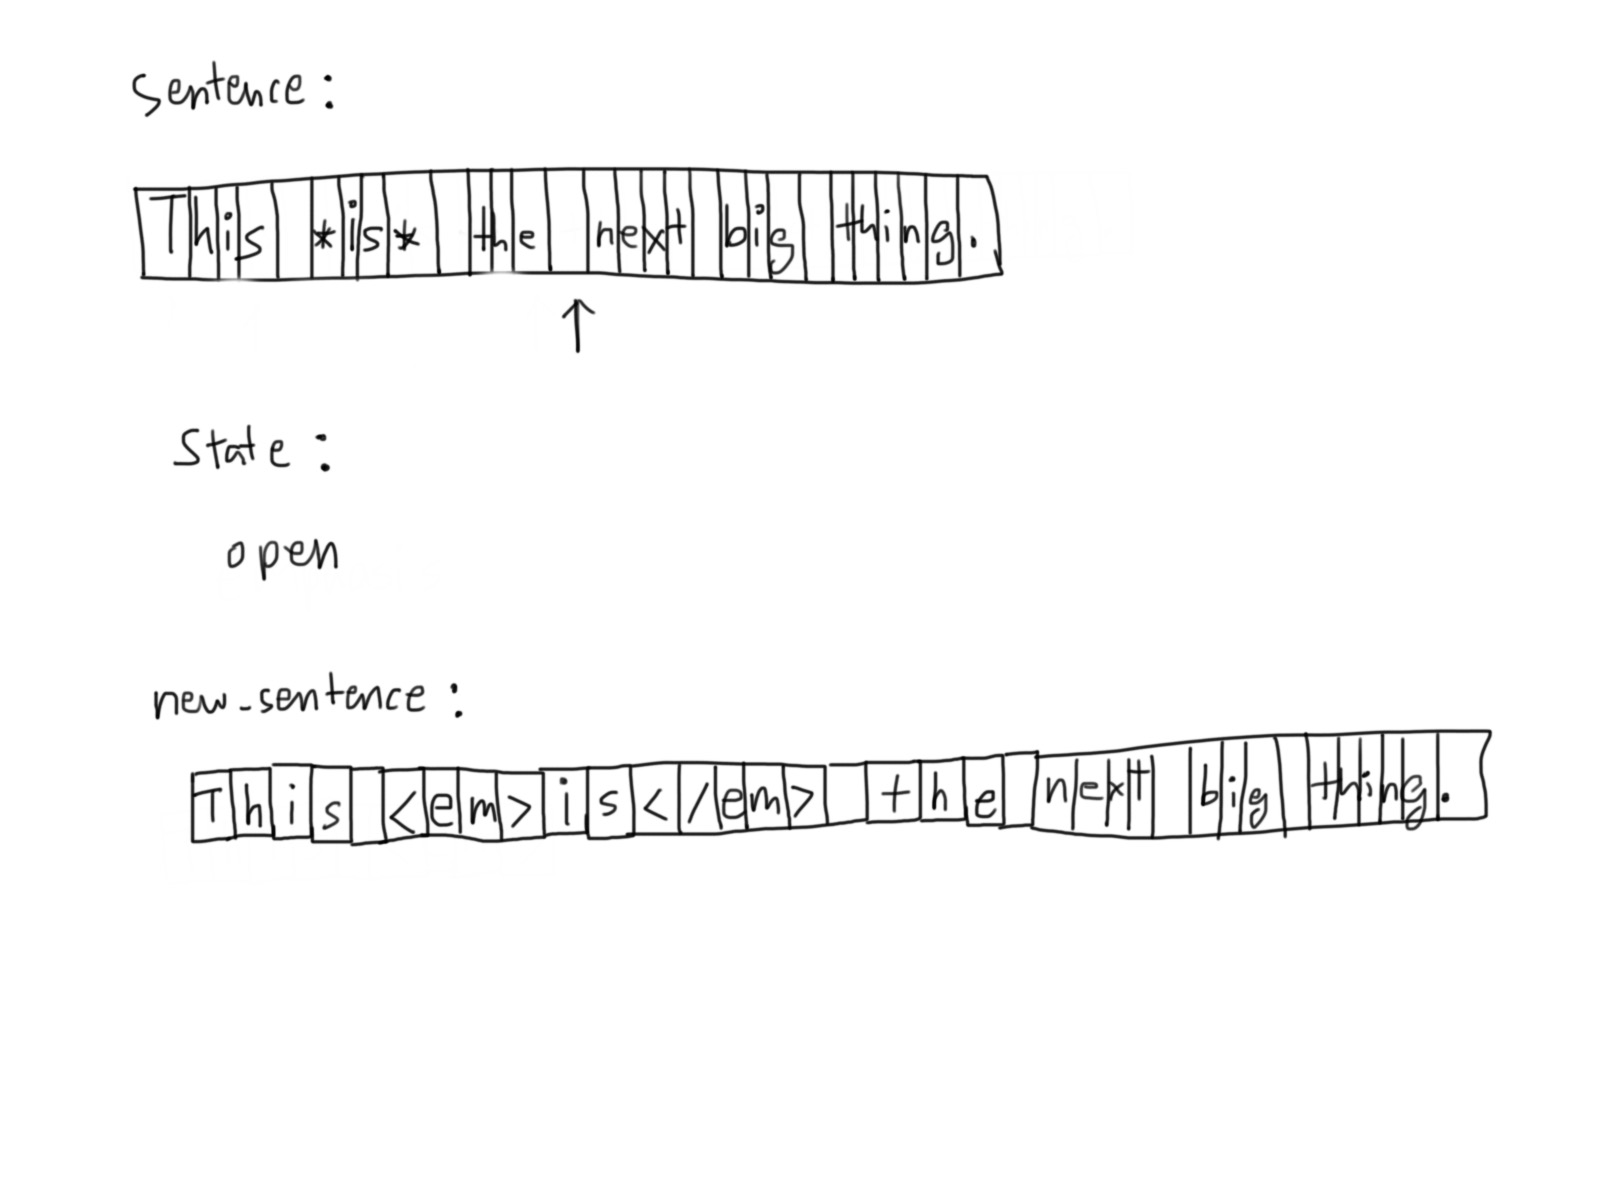 sentence:
This *is* the next big thing.
↑
state:
open
new_sentence:
This <em>is</em> the next big thing.